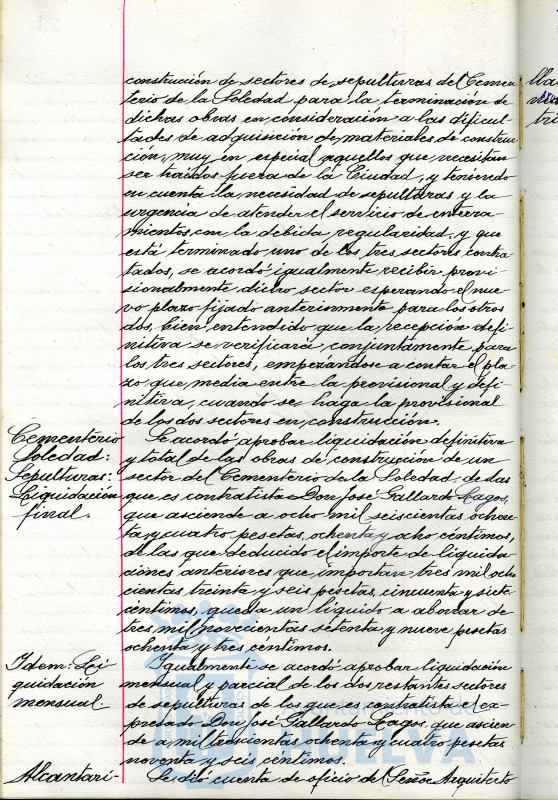 construcción de sectores de sepulturas del Cemen-
terio de la Soledad para la terminación de
dichas obras en consideración a las dificul-
tades de adquisición de materiales de construc-
ción, muy en especial aquellos que necesitan
ser traidos fuera de la Ciudad, y teniendo
en cuenta la necesidad de sepulturas y la
urgencia de atender el servicio de enterra-
mientos con la debida regularidad, y que
está terminado uno de los tres sectores contra-
tados, se acordó igualmente recibir provi-
sionalmente dicho sector esperando el nue-
vo plazo fijado anteriormente para los otros
dos, bien entendido que la recepción defi-
nitiva se verificará conjuntamente para
los tres sectores, empezándose a contar el pla-
zo que media entre la provisional y defi-
nitiva, cuando se haga la provisional
de los dos sectores en construcción.
Cementerio
Soledad:
Sepulturas:
Liquidación
final.
Se acordó aprobar liquidación definitiva
y total de las obras de construcción de un
sector del Cementerio de la Soledad, de las
que es contratista Don José Gallardo Lagos,
que asciende a ocho mil seiscientas ochen-
ta y cuatro pesetas, ochenta y ocho céntimos,
de las que deducido el importe de liquida-
ciones anteriores que importan tres mil ocho
cientas treinta y seis pesetas, cincuenta y siete
céntimos, queda un líquido a abonar de
tres mil novecientas setenta y nueve pesetas
ochenta y tres céntimos.
Idem: Li-
quidación
mensual.
Igualmente se acordó aprobar liquidación
mensual y parcial de los dos restantes sectores
de sepulturas de los que es contratista el ex-
presado Don José Gallardo Lagos, que ascien-
de a mil trescientas ochenta y cuatro pesetas
noventa y seis céntimos.
Alcantari-
Se dió cuenta de oficio del Señor Arquitecto
HUELVA